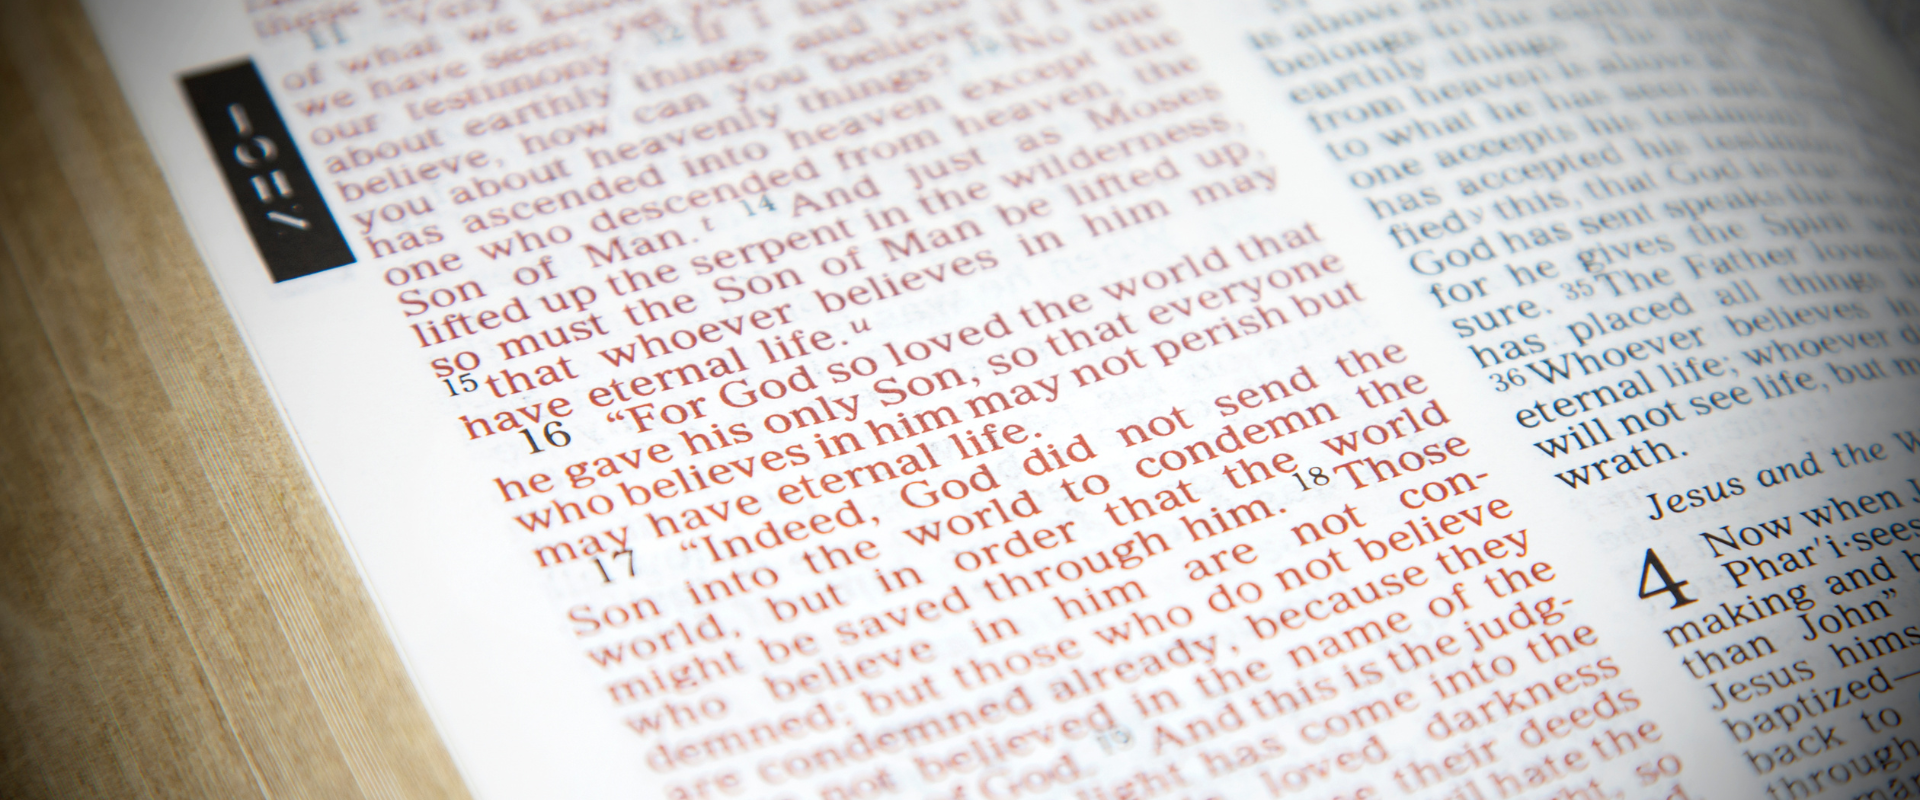 JOHN
11 "Very
of what we know
we have seen; yet you
our testimony. 12 If I
about earthly things and you
believe, how can you believe if I
you about heavenly things? 13 No one
has ascended into heaven except the
one who descended from heaven, the
Son of Man.t 14 And just as Moses
lifted up the serpent in the wilderness,
so must the Son of Man be lifted up,
15 that whoever believes in him may
have eternal life.u
16 “For God so loved the world that
he gave his only Son, so that everyone
who believes in him may not perish but
may have eternal life.
17 “Indeed, God did not send the
Son into the world to condemn the
world, but in order that the world
might be saved through him. 18 Those
who believe in him are not con-
demned; but those who do not believe
are condemned already, because they
not believed in the name of the
of God. 19 And this is the judg-
light has come into the
loved darkness
their deeds
hate the
so
is above
belongs to the earth
earthly things. The
from heaven is above
to what he has seen and
one accepts his testimony
has accepted his testimony
fiedv this, that God is true
God has sent speaks the
for he gives the Spirit
sure. 35 The Father loves
has placed all things
36 Whoever believes in
eternal life; whoever
will not see life, but
wrath.
Jesus and the
4 Now when
Phar′i·sees
making and
than John”
Jesus hims
baptized—
back to
through